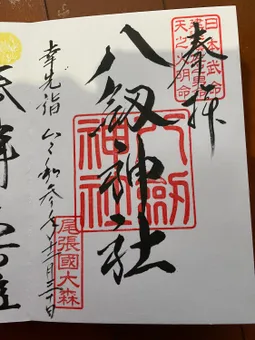 奉拝
日本武命
天之火明命
八劔神社
八劔神社
幸先詣 令和参年十二月三十日
尾張國大森